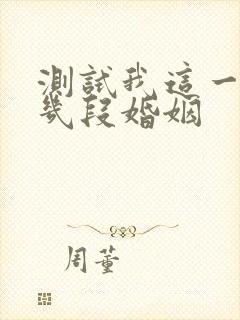 測試我這一
幾段婚姻
周董